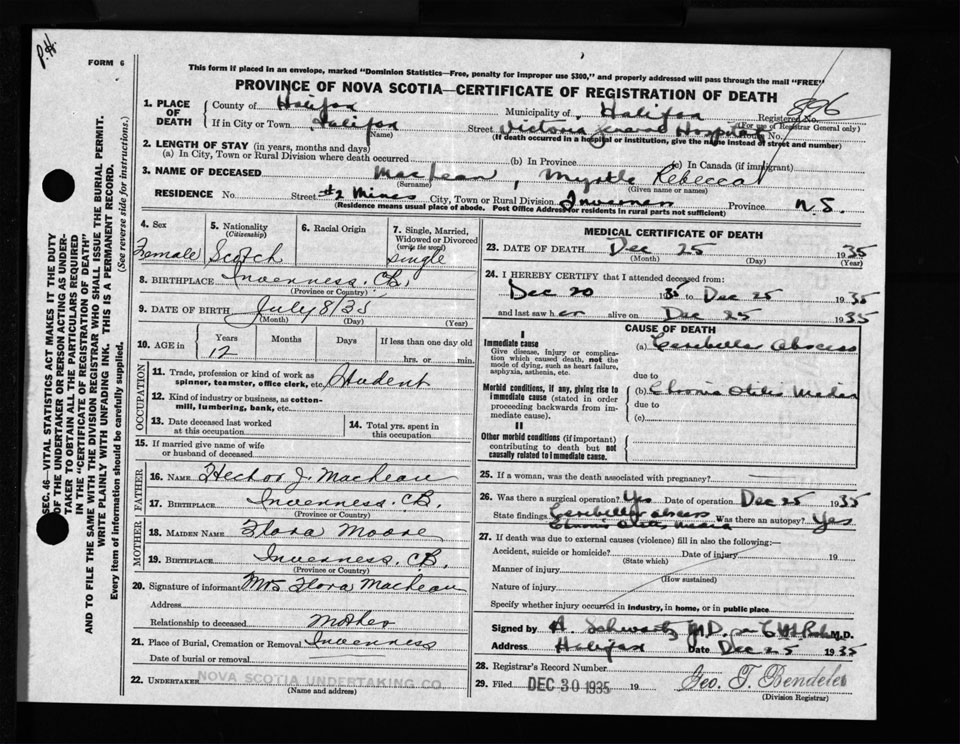 P.H.
FORM 6
This form if placed in an envelope, marked "Dominion Statistics—Free, penalty for improper use $300," and properly addressed will pass through the mail "FREE"
PROVINCE OF NOVA SCOTIA—CERTIFICATE OF REGISTRATION OF DEATH
896
1. PLACE OF DEATH
County of Halifax Municipality of Halifax Registered No.
(For use of Registrar General only)
If in City or Town Halifax Street Victoria General Hospital House No.
(Name) (If death occurred in a hospital or institution, give the name instead of street and number)
2. LENGTH OF STAY (in years, months and days)
(a) In City, Town or Rural Division where death occurred (b) In Province (c) In Canada (if immigrant)
3. NAME OF DECEASED MacLean, Myrtle Rebecca
(Surname) (Given name or names)
RESIDENCE No. Street #2 Mines City, Town or Rural Division Inverness Province N.S.
(Residence means usual place of abode. Post Office Address for residents in rural parts not sufficient)
4. Sex
Female
5. Nationality
(Citizenship)
Scotch
6. Racial Origin
7. Single, Married, Widowed or Divorced
(write the word)
Single
8. BIRTHPLACE Inverness, CB,
(Province or Country)
9. DATE OF BIRTH July 8/23
(Month) (Day) (Year)
10. AGE in Years Months Days If less than one day old
12 hrs. or min.
OCCUPATION
11. Trade, profession or kind of work as spinner, teamster, office clerk, etc. Student
12. Kind of industry or business, as cotton-mill, lumbering, bank, etc.
13. Date deceased last worked at this occupation
14. Total yrs. spent in this occupation
15. If married give name of wife or husband of deceased
FATHER
16. NAME Hector J. MacLean
17. BIRTHPLACE Inverness, CB.
(Province or Country)
MOTHER
18. MAIDEN NAME Flora Moore
19. BIRTHPLACE Inverness, CB,
(Province or Country)
20. Signature of informant Mrs Flora MacLean
Address
Relationship to deceased Mother
21. Place of Burial, Cremation or Removal Inverness
Date of burial or removal
22. UNDERTAKER NOVA SCOTIA UNDERTAKING CO.
(Name and address)
MEDICAL CERTIFICATE OF DEATH
23. DATE OF DEATH Dec 25 1935
(Month) (Day) (Year)
24. I HEREBY CERTIFY that I attended deceased from:
Dec 20 1935 to Dec 25 1935
and last saw her alive on Dec 25 1935
CAUSE OF DEATH
I
Immediate cause
Give disease, injury or complication which caused death, not the mode of dying, such as heart failure, asphyxia, asthenia, etc.
(a) Cerebellar Abscess
due to
Morbid conditions, if any, giving rise to immediate cause (stated in order proceeding backwards from immediate cause).
(b) Chronic Otitis Media
due to
(c)
II
Other morbid conditions (if important) contributing to death but not causally related to immediate cause.
25. If a woman, was the death associated with pregnancy?
26. Was there a surgical operation? Yes Date of operation Dec 25 1935
State findings Cerebellar abscess
Chronic Otitis Media Was there an autopsy? Yes
27. If death was due to external causes (violence) fill in also the following:—
Accident, suicide or homicide? Date of injury 19
(State which)
Manner of injury
(How sustained)
Nature of injury
Specify whether injury occurred in industry, in home, or in public place
Signed by A. Schwartz M.D. M.D.
Address Halifax Date Dec 25 1935
28. Registrar's Record Number
29. Filed DEC 30 1935 19 Geo. T. Bendelei
(Division Registrar)
SEC. 46—VITAL STATISTICS ACT MAKES IT THE DUTY
OF THE UNDERTAKER OR PERSON ACTING AS UNDER-
TAKER TO OBTAIN ALL THE PARTICULARS REQUIRED
IN THE "CERTIFICATE OF REGISTRATION OF DEATH"
AND TO FILE THE SAME WITH THE DIVISION REGISTRAR WHO SHALL ISSUE THE BURIAL PERMIT.
WRITE PLAINLY WITH UNFADING INK. THIS IS A PERMANENT RECORD.
Every item of information should be carefully supplied. (See reverse side for instructions.)